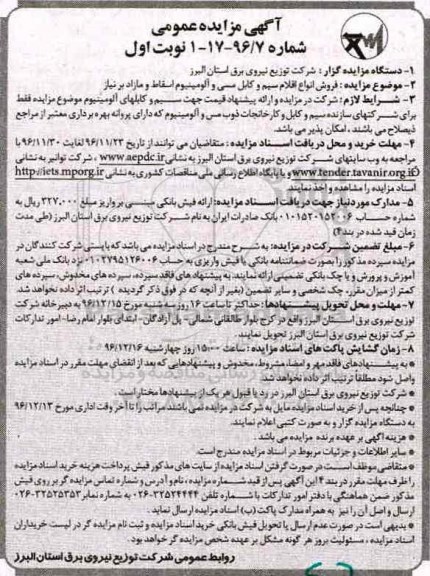 آگهی مزایده عمومی
شماره ۹۶/۷-۱۷-۱ نوبت اول
۱- دستگاه مزایده گزار : شرکت توزیع نیروی برق استان البرز
۲- موضوع مزایده : فروش انواع اقلام سیم و کابل مسی و آلومینیوم اسقاط و مازاد بر نیاز
۳- شرایط لازم : شرکت در مزایده و ارائه پیشنهاد قیمت جهت سیم و کابلهای آلومینیوم موضوع مزایده فقط
برای شرکتهای سازنده سیم و کابل و کارخانجات ذوب مس و آلومینیوم که دارای پروانه بهره برداری معتبر از مراجع
ذیصلاح می باشند ، امکان پذیر می باشد.
۴- مهلت خرید و محل دریافت اسناد مزایده : متقاضیان می توانند از تاریخ ۹۶/۱۱/۲۳ لغایت ۹۶/۱۱/۳۰ با
مراجعه به وب سایتهای شرکت توزیع نیروی برق استان البرز به نشانی www.aepdc.ir ، شرکت توانیر به نشانی
www.tender.tavanir.org.ir و یا پایگاه اطلاع رسانی ملی مناقصات کشوری به نشانی http://iets.mporg.ir
اسناد مزایده را مشاهده و اخذ نمایند.
۵- مدارک مورد نیاز جهت دریافت اسناد مزایده: ارائه فیش بانکی مبنی بر واریز مبلغ ۳۲۷،۰۰۰ ریال به
شماره حساب ۰۱۰۱۵۲۰۱۵۲۰۰۶ بانک صادرات ایران به نام شرکت توزیع نیروی برق استان البرز (طی مدت
زمان قید شده در بند ۴)
۶- مبلغ تضمین شرکت در مزایده: به شرح مندرج در اسناد مزایده می باشد که بایستی شرکت کنندگان در
مزایده سپرده مذکور را بصورت ضمانتنامه بانکی یا فیش واریزی به حساب ۰۱۰۲۷۹۵۱۲۶۰۰۶ نزد بانک ملی شعبه
آموزش و پرورش و یا چک بانکی تضمینی ارائه نمایند. به پیشنهاد های فاقد سپرده، سپرده های مخدوش، سپرده های
کمتر از میزان مقرر، چک شخصی و سایر تضمین (بغیر از آنچه که در فوق ذکر گردیده ) ترتیب اثر داده نخواهد شد.
۷- مهلت و محل تحویل پیشنهادها: حداکثر تا ساعت ۱۶ روز سه شنبه مورخ ۹۶/۱۲/۱۵ به دبیرخانه شرکت
توزیع نیروی برق استان البرز واقع در کرج بلوار طالقانی شمالی- پل آزادگان- ابتدای بلوار امام رضا- امور تدارکات
شرکت توزیع نیروی برق استان البرز تحویل نمایند.
۸- زمان گشایش پاکت های اسناد مزایده : ساعت ۱۵:۰۰ روز چهارشنبه ۹۶/۱۲/۱۶
* به پیشنهادهای فاقد مهر و امضا، مشروط، مخدوش و پیشنهادهایی که بعد از انقضای مهلت مقرر در اسناد مزایده
واصل شود مطلقا ترتیب اثر داده نخواهد شد.
* شرکت توزیع نیروی برق استان البرز در رد یا قبول هر یک از پیشنهادها مختار است.
* چنانچه پس از خرید اسناد مزایده مایل به شرکت در مزایده نمی باشند مراتب را تا آخر وقت اداری مورخ ۹۶/۱۲/۱۳
به دستگاه مزایده گزار و به صورت کتبی اعلام نمایند.
* هزینه آگهی بر عهده برنده مزایده می باشد .
* سایر اطلاعات و جزئیات مربوط در اسناد مزایده مندرج است.
* متقاضی موظف است در صورت گرفتن اسناد مزایده از سایت های مذکور فیش پرداخت هزینه خرید اسناد مزایده
را ظرف مهلت مقرر در بند ۴ این آگهی پس از قید شماره مزایده، نام و آدرس و شماره تماس مزایده گر بر روی فیش
مذکور ضمن هماهنگی با دفتر امور تدارکات با شماره تلفن ۳۲۵۲۴۴۴۴-۰۲۶ به شماره نمابر ۳۲۵۲۵۳۵۳-۰۲۶
ارسال و اصل آن را نیز به همراه مدارک پاکت (ب) اسناد مزایده ارسال نماید.
* بدیهی است در صورت عدم ارسال یا تحویل فیش بانکی خرید اسناد مزایده و ثبت نام مزایده گر در لیست خریداران
اسناد مزایده ، مسئولیت بروز هر گونه مشکل بر عهده شخص مزایده گر خواهد بود.
روابط عمومی شرکت توزیع نیروی برق استان البرز